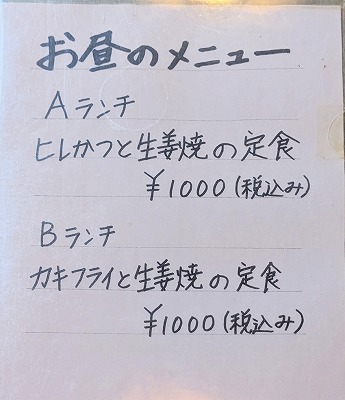 お昼のメニュー
Aランチ
ヒレかつと生姜焼の定食
¥1000(税込み)
Bランチ
カキフライと生姜焼の定食
¥1000(税込み)